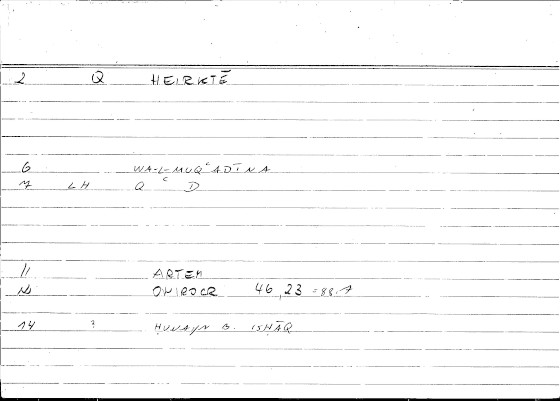 2 Q HEIRKTĒ
6 WA-L-MUQʿADĪNA
7 LH QʿD
11 ARTEM
12 ONIROCR 46,23 = 88.7
14 ? ḤUNAYN B. ISḤĀQ